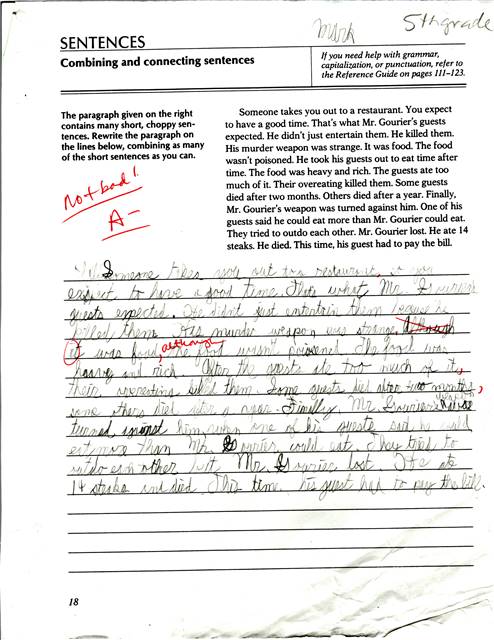 Mark
5th grade
SENTENCES
Combining and connecting sentences
If you need help with grammar,
capitalization, or punctuation, refer to
the Reference Guide on pages 111–123.
The paragraph given on the right
contains many short, choppy sen-
tences. Rewrite the paragraph on
the lines below, combining as many
of the short sentences as you can.
Not bad!
A-
Someone takes you out to a restaurant. You expect
to have a good time. That's what Mr. Gourier's guests
expected. He didn't just entertain them. He killed them.
His murder weapon was strange. It was food. The food
wasn't poisoned. He took his guests out to eat time after
time. The food was heavy and rich. The guests ate too
much of it. Their overeating killed them. Some guests
died after two months. Others died after a year. Finally,
Mr. Gourier's weapon was turned against him. One of his
guests said he could eat more than Mr. Gourier could eat.
They tried to outdo each other. Mr. Gourier lost. He ate 14
steaks. He died. This time, his guest had to pay the bill.
Someone takes you out to a restaurant, you
expect to have a good time. Thats what Mr. Gouriers
guests expected. He didnt just entertain them he
killed them. His murder weapon was strange. Although
it was food, although the food wasn't poisoned. The food was
heavy and rich. After the guests ate too much of it,
their overeating killed them. Some guests died after two months,
some others died after a year. Finally, Mr. Gourier's weapon
turned against him, when one of his guests said he could
eat more than Mr. Gourier could eat. They tried to
outdo each other but Mr. Gourier lost. He ate
14 steaks and died. This time his guest had to pay the bill.
18